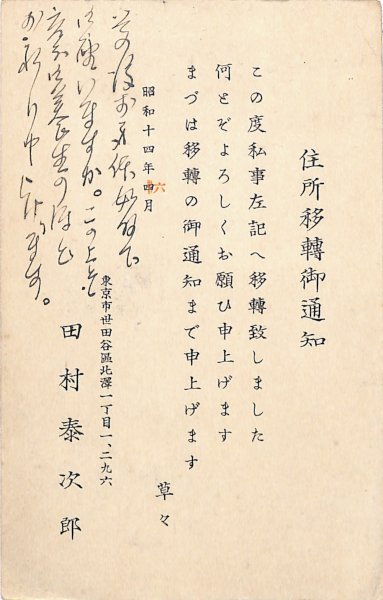 住所移轉御通知
この度私事左記へ移轉致しました
何とぞよろしくお願ひ申上げます
まづは移轉の御通知まで申上げます
草々
昭和十四年六月
東京市世田谷區北澤一丁目一、二九六
田村泰次郎
後お身体如何で
御座いますか。この上とも
御養生のほど
お祈り申上げます。